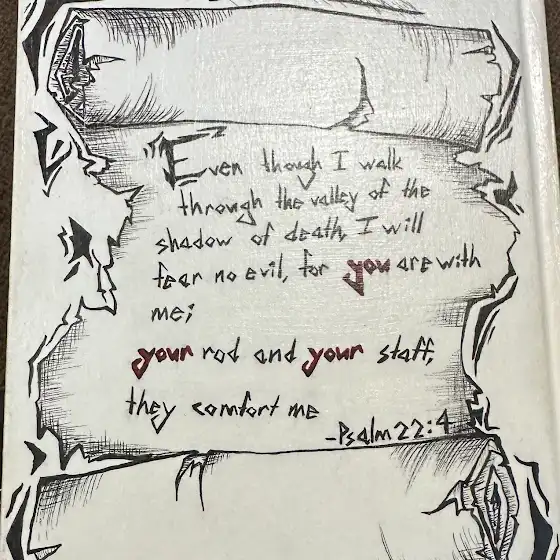 "Even though I walk
through the valley of the
shadow of death, I will
fear no evil, for you are with
me;
your rod and your staff,
they comfort me
-Psalm 22:4